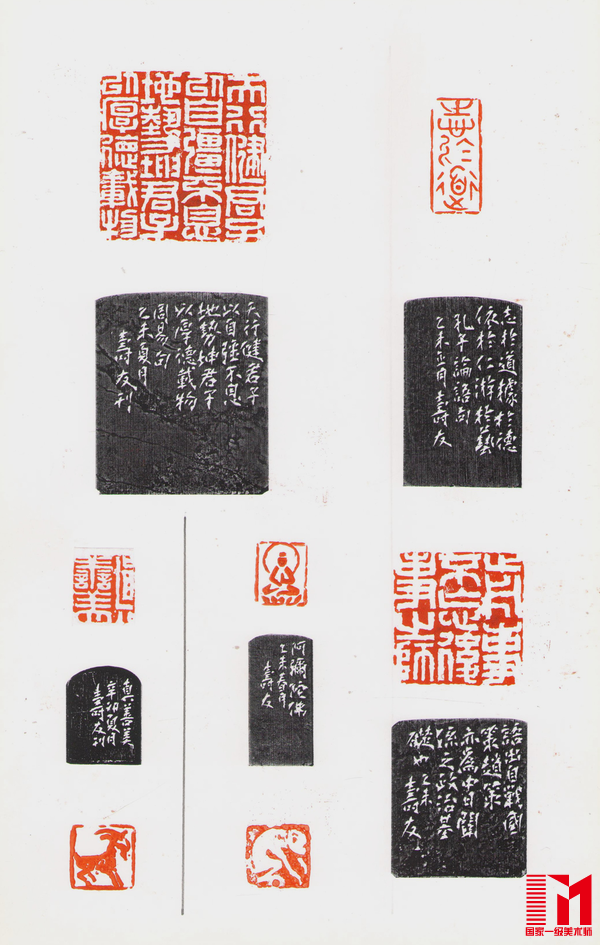 天行健君子
以自彊不息
地勢坤君子
以厚德載物
志於道
天行健君子
以自強不息
地勢坤君子
以厚德載物
周易句
乙未夏月
壽友刊
志於道據於德
依於仁游於藝
孔子論語句
乙未正月壽友
真善美
真善美
辛卯夏月
壽友刊
阿彌陀佛
乙未春月
壽友
前事
不忘後
事之師
語出自戰國
策趙策
亦為中日關
係之政治基
礎也乙未
壽友
国家一级美术师